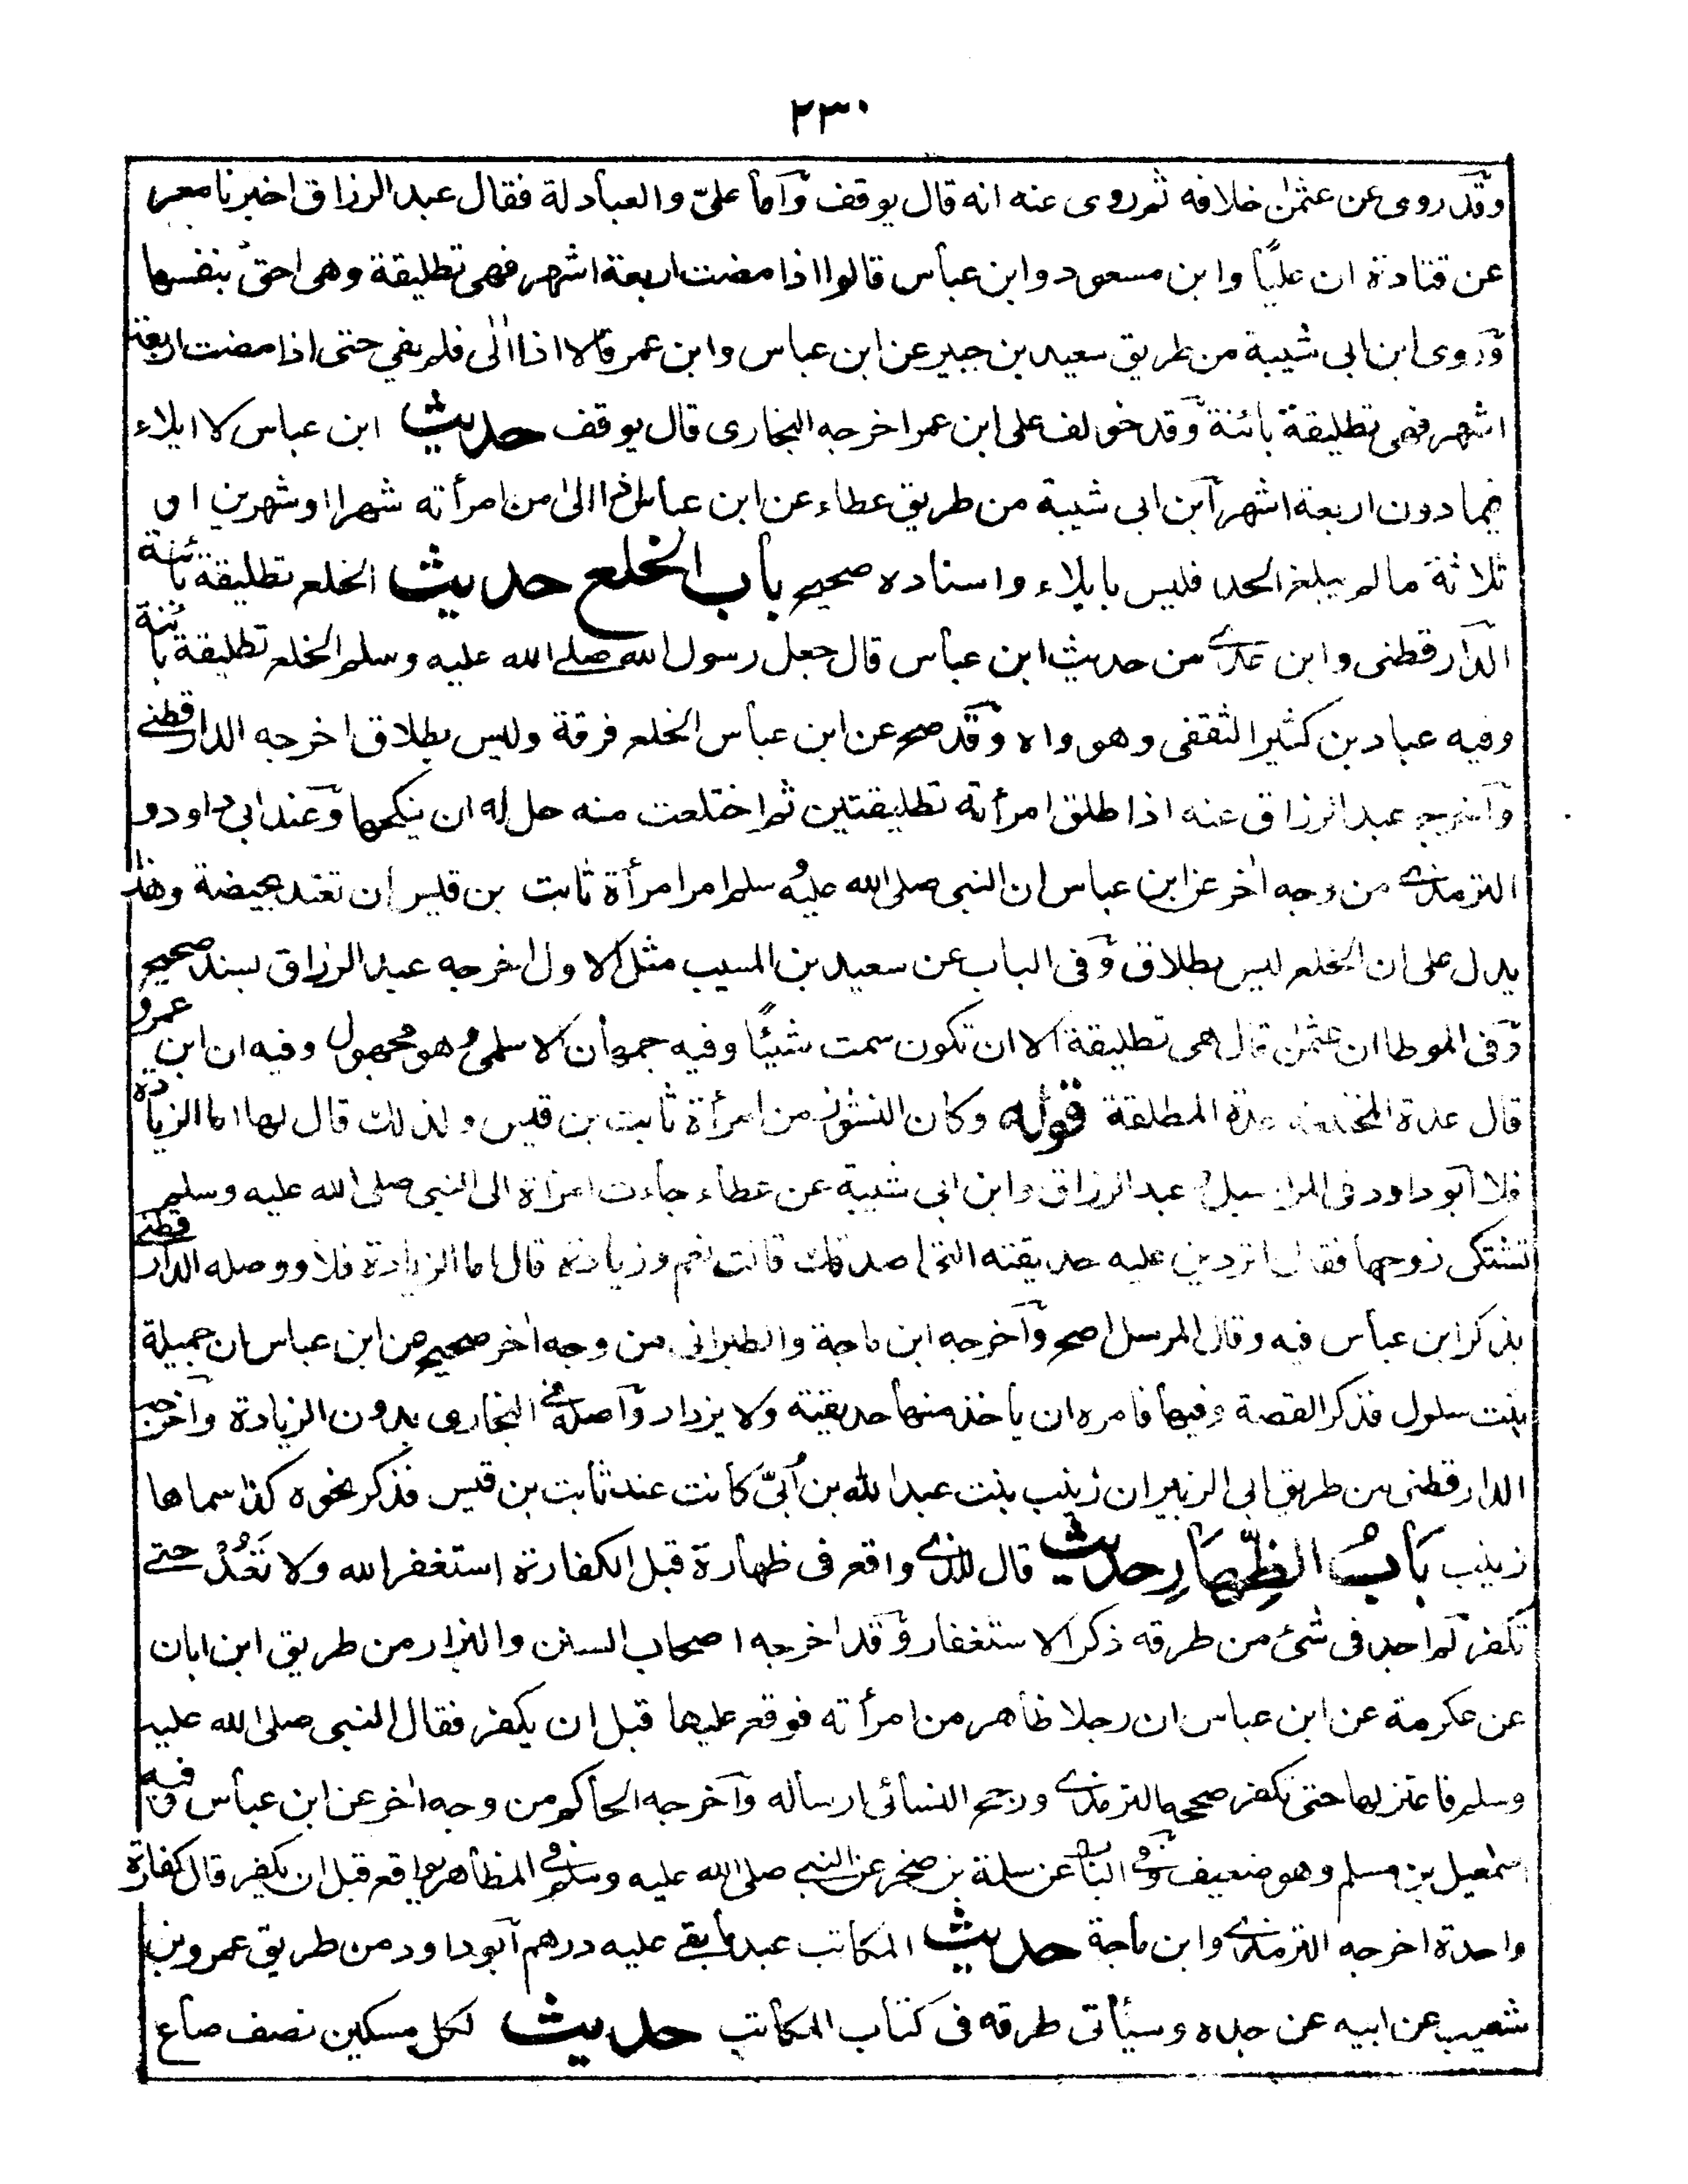 ٢٣٠
وقد روى عن عثمٰن خلافه ثم روى عنه انه قال يوقف وأما علىّ والعبادلة فقال عبد الرزاق اخبرنا معمر
عن قتادة ان عليًا وابن مسعود وابن عباس قالوا اذا مضت اربعة اشهر فهى تطليقة وهى احق بنفسها
وروى ابن ابى شيبة من طريق سعيد بن جبير عن ابن عباس وابن عمر قالا اذا اٰلى فلم يفى حتى اذا مضت اربعة
اشهر فهى تطليقة بائنة وقد خولف على ابن عمر اخرجه البخارى قال يوقف حديث ابن عباس لا ايلاء
فيما دون اربعة اشهر ابن ابى شيبة من طريق عطاء عن ابن عباس اذا الىٰ من امرأته شهرا اوشهرين او
ثلاثة مالم يبلغ الحد فليس بايلاء واسناده صحيح باب الخلع حديث الخلع تطليقة بائنة
الدارقطنى وابن عدى من حديث ابن عباس قال جعل رسول الله صلى الله عليه وسلم الخلع تطليقة بائنة
وفيه عباد بن كثير الثقفى وهو واه وقد صح عن ابن عباس الخلع فرقة وليس بطلاق اخرجه الدارقطنى
واخرج عبد الرزاق عنه اذا طلق امرأته تطليقتين ثم اختلعت منه حل له ان ينكحها وعند ابى داود و
الترمذى من وجه اٰخر عن ابن عباس ان النبى صلى الله عليه وسلم امر امرأة ثابت بن قيس ان تعتد بحيضة وهذا
يدل على ان الخلع ليس بطلاق وفى الباب عن سعيد بن المسيب مثل الاول اخرجه عبد الرزاق بسند صحيح
وفى الموطا ان عثمٰن قال هى تطليقة الا ان تكون سمت شيئًا وفيه جمهان الاسلمى وهو مجهول وفيه ان ابن عمر و
قال عدة المختلعة عدة المطلقة قوله وكان النشوز من امرأة ثابت بن قيس ولذلك قال لها اما الزيادة
فلا ابو داود فى المراسيل و عبد الرزاق وابن ابى شيبة عن عطاء جاءت امرأة الى النبى صلى الله عليه وسلم
تشتكى زوجها فقال اتردين عليه حديقته التى اصدقك قالت نعم وزيادة قال اما الزيادة فلا ووصله الدارقطنى
بذكر ابن عباس فيه وقال المرسل اصح واخرجه ابن ماجة والطبرانى من وجه اٰخر صحيح عن ابن عباس ان جميلة
بنت سلول فذكر القصة وفيها فامره ان يأخذ منها حديقته ولا يزداد واصله فى البخارى بدون الزيادة واخرجه
الدارقطنى من طريق ابى الزبير ان زينب بنت عبد الله بن اُبىّ كانت عند ثابت بن قيس فذكر نحوه كذا سماها
زينب بَابُ الظِّهَارِ حديث قال للذى واقع فى ظهارة قبل الكفارة استغفر الله ولا تَعُدْ حتى
تكفر لم اجد فى شئ من طرقه ذكر الاستغفار وقد اخرجه اصحاب السنن والبزار من طريق ابن ابان
عن عكرمة عن ابن عباس ان رجلا ظاهر من امرأته فوقع عليها قبل ان يكفر فقال النبى صلى الله عليه
وسلم فاعتزلها حتى تكفر صححه الترمذى ورجح النسائى ارساله واخرجه الحاكم من وجه اٰخر عن ابن عباس وفيه
اسمٰعيل بن مسلم وهو ضعيف وفى الباب عن سلمة بن صخر عن النبى صلى الله عليه وسلم فى المظاهر يواقع قبل ان يكفر قال كفارة
واحدة اخرجه الترمذى وابن ماجة حديث المكاتب عبد مابقى عليه درهم ابو داود من طريق عمرو بن
شعيب عن ابيه عن جده وسيأتى طرقه فى كتاب المكاتب حديث لكل مسكين نصف صاع